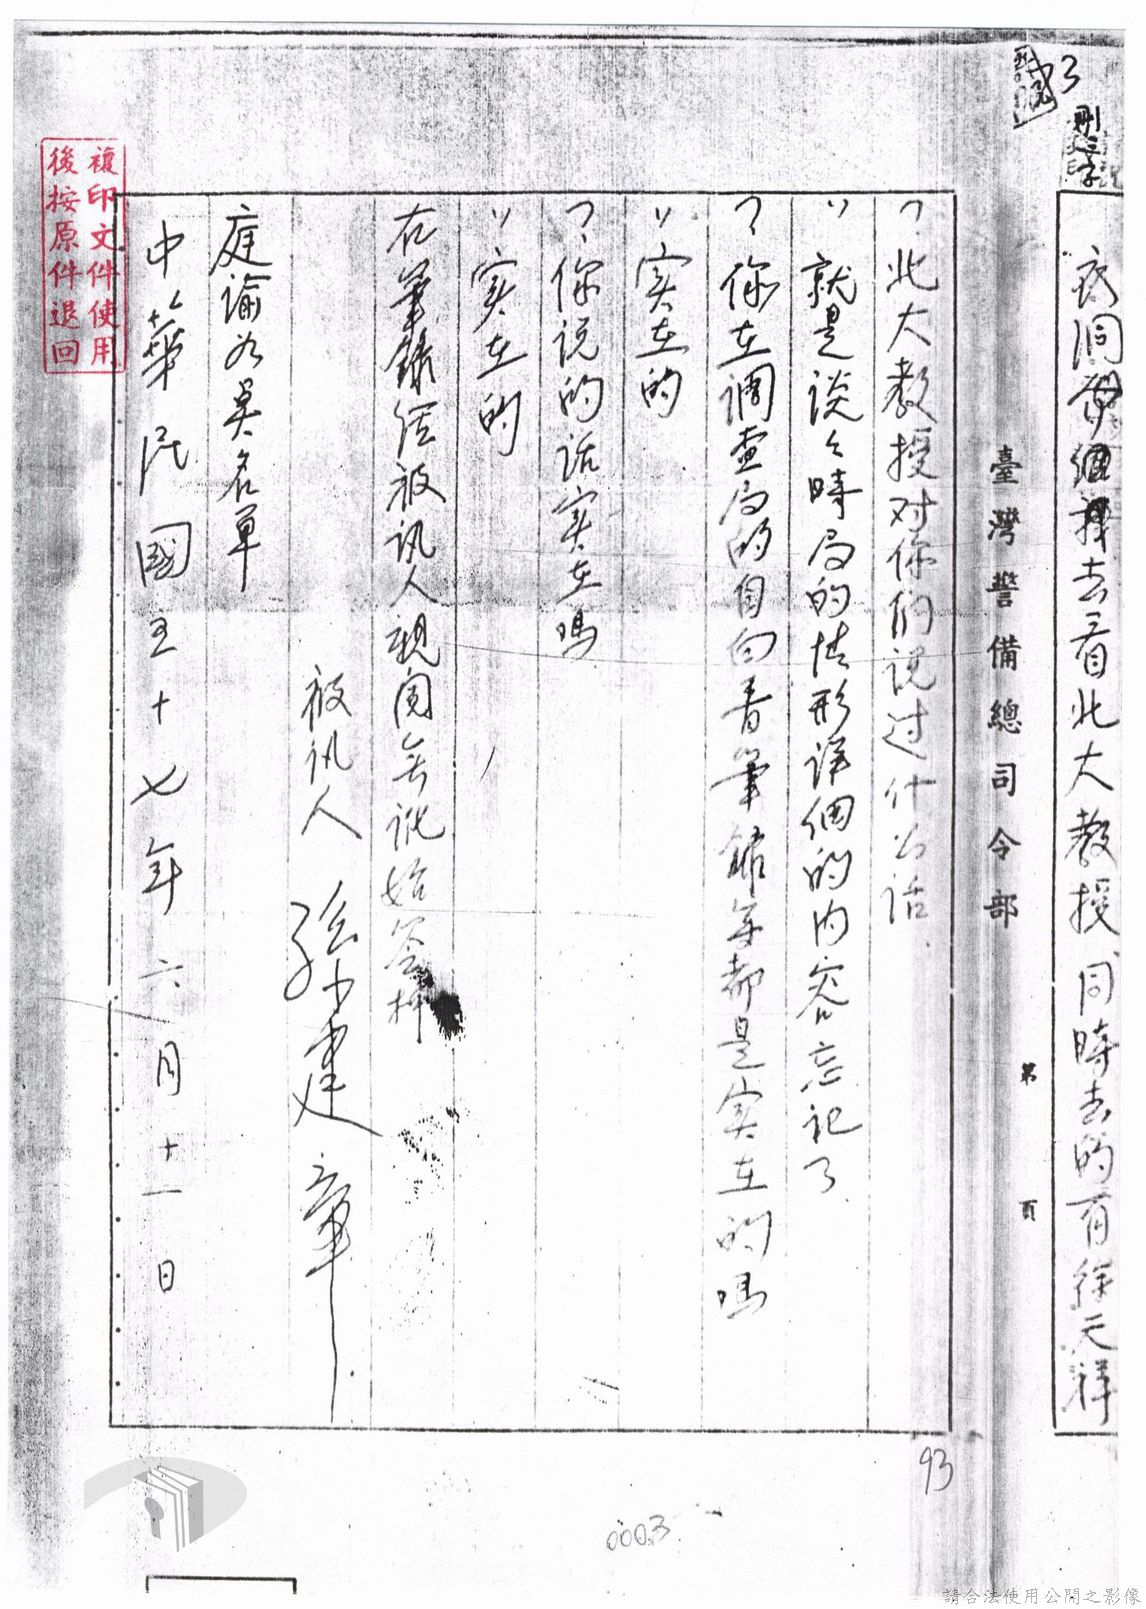 3
刪三字
去看北大教授同時去的有徐天祥
臺灣警備總司令部 第 頁
北大教授对你们说过什么话
就是談々時局的情形詳细的内容忘记了
你在调查局的自白書筆錄等都是实在的吗
实在的
你说的话实在吗
实在的
右筆錄经被讯人親閱無訛始簽押
被讯人 孫建章
庭谕
名单
中華民國五十七年六月十一日
複印文件使用
後按原件退回
93
0003
請合法使用公開之影像